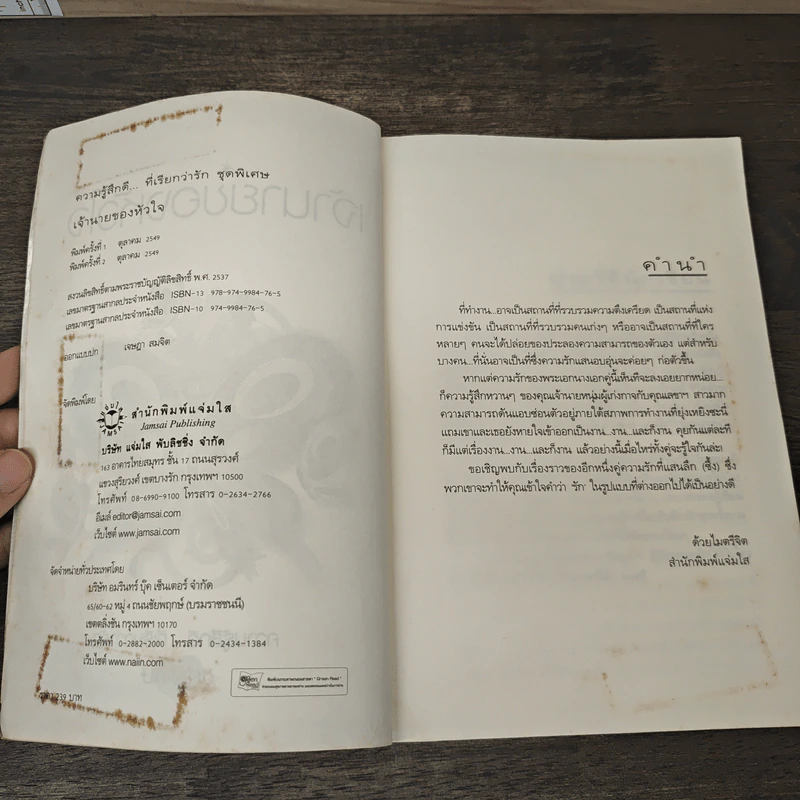 ความรู้สึกดี... ที่เรียกว่ารัก ชุดพิเศษ
เจ้านายของหัวใจ
พิมพ์ครั้งที่ 1 ตุลาคม 2549
พิมพ์ครั้งที่ 2 ตุลาคม 2549
สงวนลิขสิทธิ์ตามพระราชบัญญัติลิขสิทธิ์ พ.ศ. 2537
เลขมาตรฐานสากลประจำหนังสือ ISBN-13 978-974-9984-76-5
เลขมาตรฐานสากลประจำหนังสือ ISBN-10 974-9984-76-5
ออกแบบปก เจษฎา สมจิต
จัดพิมพ์โดย
สำนักพิมพ์แจ่มใส
Jamsai Publishing
บริษัท แจ่มใส พับลิชชิ่ง จำกัด
163 อาคารไทยสมุทร ชั้น 17 ถนนสุรวงศ์
แขวงสุริยวงศ์ เขตบางรัก กรุงเทพฯ 10500
โทรศัพท์ 08-6990-9100 โทรสาร 0-2634-2766
อีเมล์ editor@jamsai.com
เว็บไซต์ www.jamsai.com
จัดจำหน่ายทั่วประเทศโดย
บริษัท อมรินทร์ บุ๊ค เซ็นเตอร์ จำกัด
65/60-62 หมู่ 4 ถนนชัยพฤกษ์ (บรมราชชนนี)
เขตตลิ่งชัน กรุงเทพฯ 10170
โทรศัพท์ 0-2882-2000 โทรสาร 0-2434-1384
เว็บไซต์ www.naiin.com
239 บาท
คำนำ
ที่ทำงาน...อาจเป็นสถานที่ที่รวบรวมความตึงเครียด เป็นสถานที่แห่ง
การแข่งขัน เป็นสถานที่ที่รวบรวมคนเก่งๆ หรืออาจเป็นสถานที่ที่ใคร
หลายๆ คนจะได้ปล่อยของประลองความสามารถของตัวเอง แต่สำหรับ
บางคน...ที่นั่นอาจเป็นที่ซึ่งความรักแสนอบอุ่นจะค่อยๆ ก่อตัวขึ้น
หากแต่ความรักของพระเอกนางเอกคู่นี้เห็นทีจะลงเอยยากหน่อย...
ก็ความรู้สึกหวานๆ ของคุณเจ้านายหนุ่มผู้เก่งกาจกับคุณเลขาฯ สาวมาก
ความสามารถดันแอบซ่อนตัวอยู่ภายใต้สภาพการทำงานที่ยุ่งเหยิงซะนี่
แถมเขาและเธอยังหายใจเข้าออกเป็นงาน...งาน...และก็งาน คุยกันแต่ละที
ก็มีแต่เรื่องงาน...งาน...และก็งาน แล้วอย่างนี้เมื่อไหร่ทั้งคู่จะรู้ใจกันล่ะ!
ขอเชิญพบกับเรื่องราวของอีกหนึ่งคู่ความรักที่แสนลึก (ซึ้ง) ซึ่ง
พวกเขาจะทำให้คุณเข้าใจคำว่า 'รัก' ในรูปแบบที่ต่างออกไปได้เป็นอย่างดี
ด้วยไมตรีจิต
สำนักพิมพ์แจ่มใส